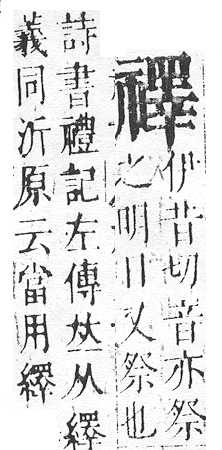 伊昔切音亦祭
之明日又祭也
詩書禮記左傳𠀤从繹
義同沂原云當用繹